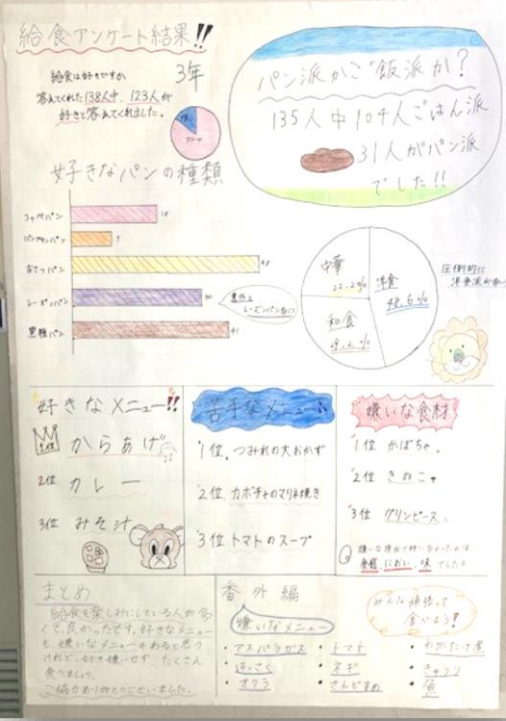 給食アンケート結果!!
3年
給食は好きですか
答えてくれた138人中、123人が
好きと答えてくれました。
パン派かご飯派か?
135人中104人ごはん派
31人がパン派
でした!!
好きなパンの種類
コッペパン
パンプキンパン
おさつパン
レーズンパン
黒糖パン
41
中華
22.2%
洋食
48.6%
和食
圧倒的に
好きなメニュー!!
1位 からあげ
2位 カレー
3位 みそ汁
苦手なメニュー
1位 つみれの大おかず
2位 カボチャのマリネ焼き
3位 トマトのスープ
嫌いな食材
1位 かぼちゃ。
2位 きのこ。
3位 グリンピース。
食感、におい、味でした
まとめ
給食を楽しみにしている人が多
くて、良かったです。好きなメニュー
も、嫌いなメニューもあると思う
けれど、好き嫌いせず、たくさん
食べましょう。
ご協力ありがとうございました。
番外編
嫌いなメニュー
・アスパラガス
・はっさく
・オクラ
・トマト
・ネギ
・さんどまめ
・きゅうり
・魚
みんな頑張って
食べよう!